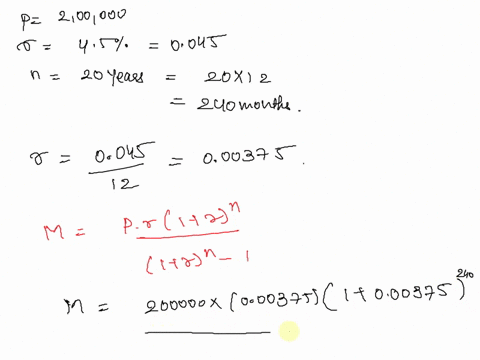 P= 2,00,000
r = 4.5% = 0.045
n = 20 years = 20 x 12
= 240 months.
r = 0.045 / 12 = 0.00375.
M = P.r (1+r)^n / (1+r)^n - 1
M = 200000 x (0.00375) (1 + 0.00375)^240